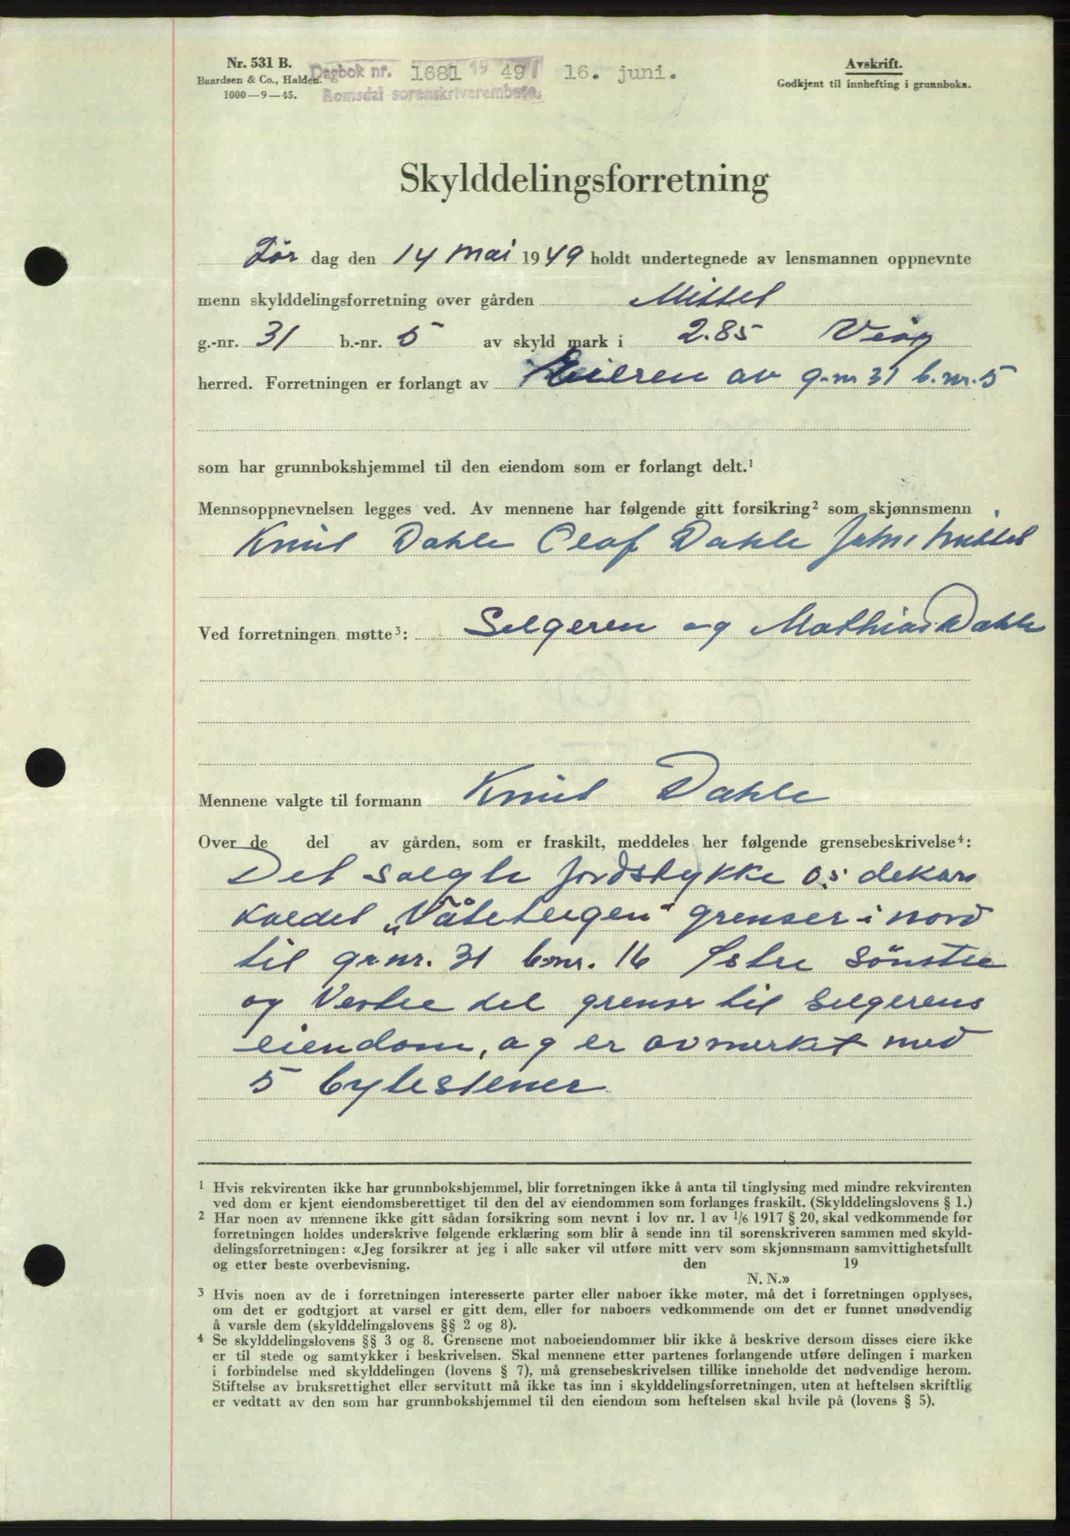 Nr. 531 B.
Baardsen & Co., Halden.
1000—9—45.
Dagbok nr. 1681 1949 16. juni.
Romsdal sorenskriverembete.
Avskrift.
Godkjent til innhefting i grunnboka.
Skylddelingsforretning
Lör dag den 14 mai 1949 holdt undertegnede av lensmannen oppnevnte
menn skylddelingsforretning over gården Mittet
g.-nr. 31 b.-nr. 5 av skyld mark i 2.85 Veöy
herred. Forretningen er forlangt av Eieren av g.nr 31 b.nr.5
som har grunnbokshjemmel til den eiendom som er forlangt delt.¹
Mennsoppnevnelsen legges ved. Av mennene har følgende gitt forsikring² som skjønnsmenn
Knut Dahle Olaf Dahle John Mittet
Ved forretningen møtte³: Selgeren og Mathias Dahle
Mennene valgte til formann Knut Dahle
Over de del av gården, som er fraskilt, meddeles her følgende grensebeskrivelse⁴:
Det solgte jordstykke 0.5 dekar
kaldet „Våteteigen" grenser i nord
til g.nr. 31 b.nr. 16 Østre Sönstre
og Vestre del grenser til selgerens
eiendom, og er avmerket med
5 bytestener
¹ Hvis rekvirenten ikke har grunnbokshjemmel, blir forretningen ikke å anta til tinglysing med mindre rekvirenten
ved dom er kjent eiendomsberettiget til den del av eiendommen som forlanges fraskilt. (Skylddelingslovens § 1.)
² Har noen av mennene ikke gitt sådan forsikring som nevnt i lov nr. 1 av 1/6 1917 § 20, skal vedkommende før
forretningen holdes underskrive følgende erklæring som blir å sende inn til sorenskriveren sammen med skyld-
delingsforretningen: «Jeg forsikrer at jeg i alle saker vil utføre mitt verv som skjønnsmann samvittighetsfullt
og etter beste overbevisning. den 19
N. N.»
³ Hvis noen av de i forretningen interesserte parter eller naboer ikke møter, må det i forretningen opplyses,
om det er godtgjort at varsel er gitt dem, eller for naboers vedkommende om det er funnet unødvendig
å varsle dem (skylddelingslovens §§ 2 og 8).
⁴ Se skylddelingslovens §§ 3 og 8. Grensene mot naboeiendommer blir ikke å beskrive dersom disses eiere ikke
er til stede og samtykker i beskrivelsen. Skal mennene etter partenes forlangende utføre delingen i marken
i forbindelse med skylddelingen (lovens § 7), må grensebeskrivelsen tillike inneholde det nødvendige herom.
Stiftelse av bruksrettighet eller servitutt må ikke tas inn i skylddelingsforretningen, uten at heftelsen skriftlig
er vedtatt av den som har grunnbokshjemmel til den eiendom som heftelsen skal hvile på (lovens § 5).